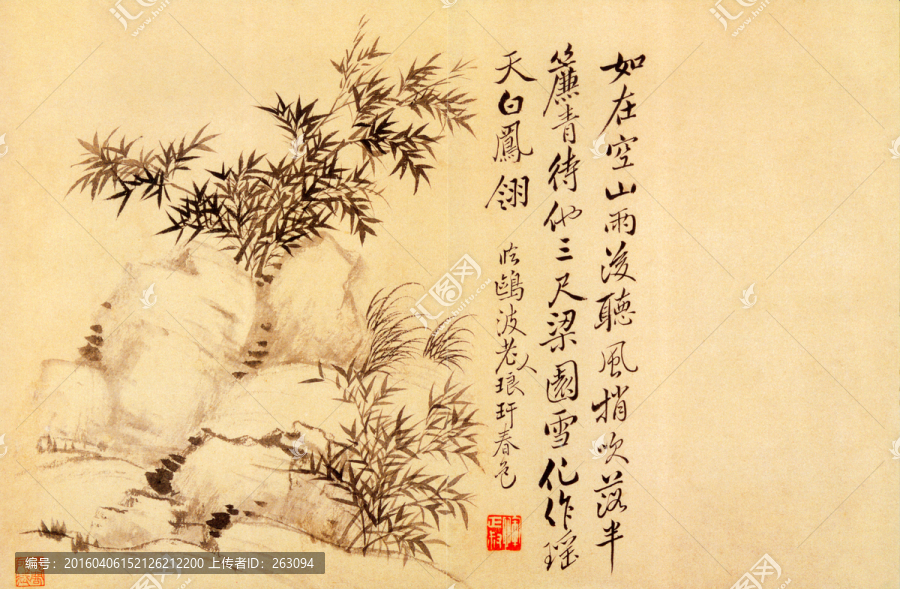 如在空山雨後聽風梢吹落半
簾青待他三尺梁園雪化作瑤
天白鳳翎
臨鷗波老人琅玕春色
正叔
汇图网
编号：20160406152126212200 上传者ID：263094